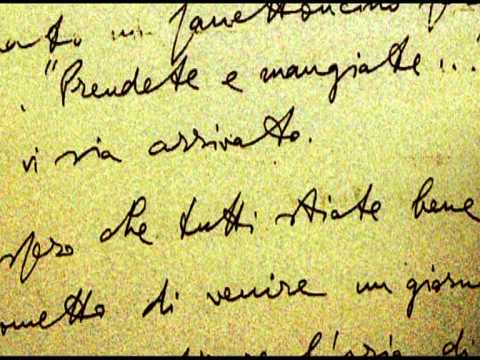 "Prendete e mangiate..."
vi sia arrivato.
spero che tutti stiate bene
ometto di venire un giorn
l'aria di